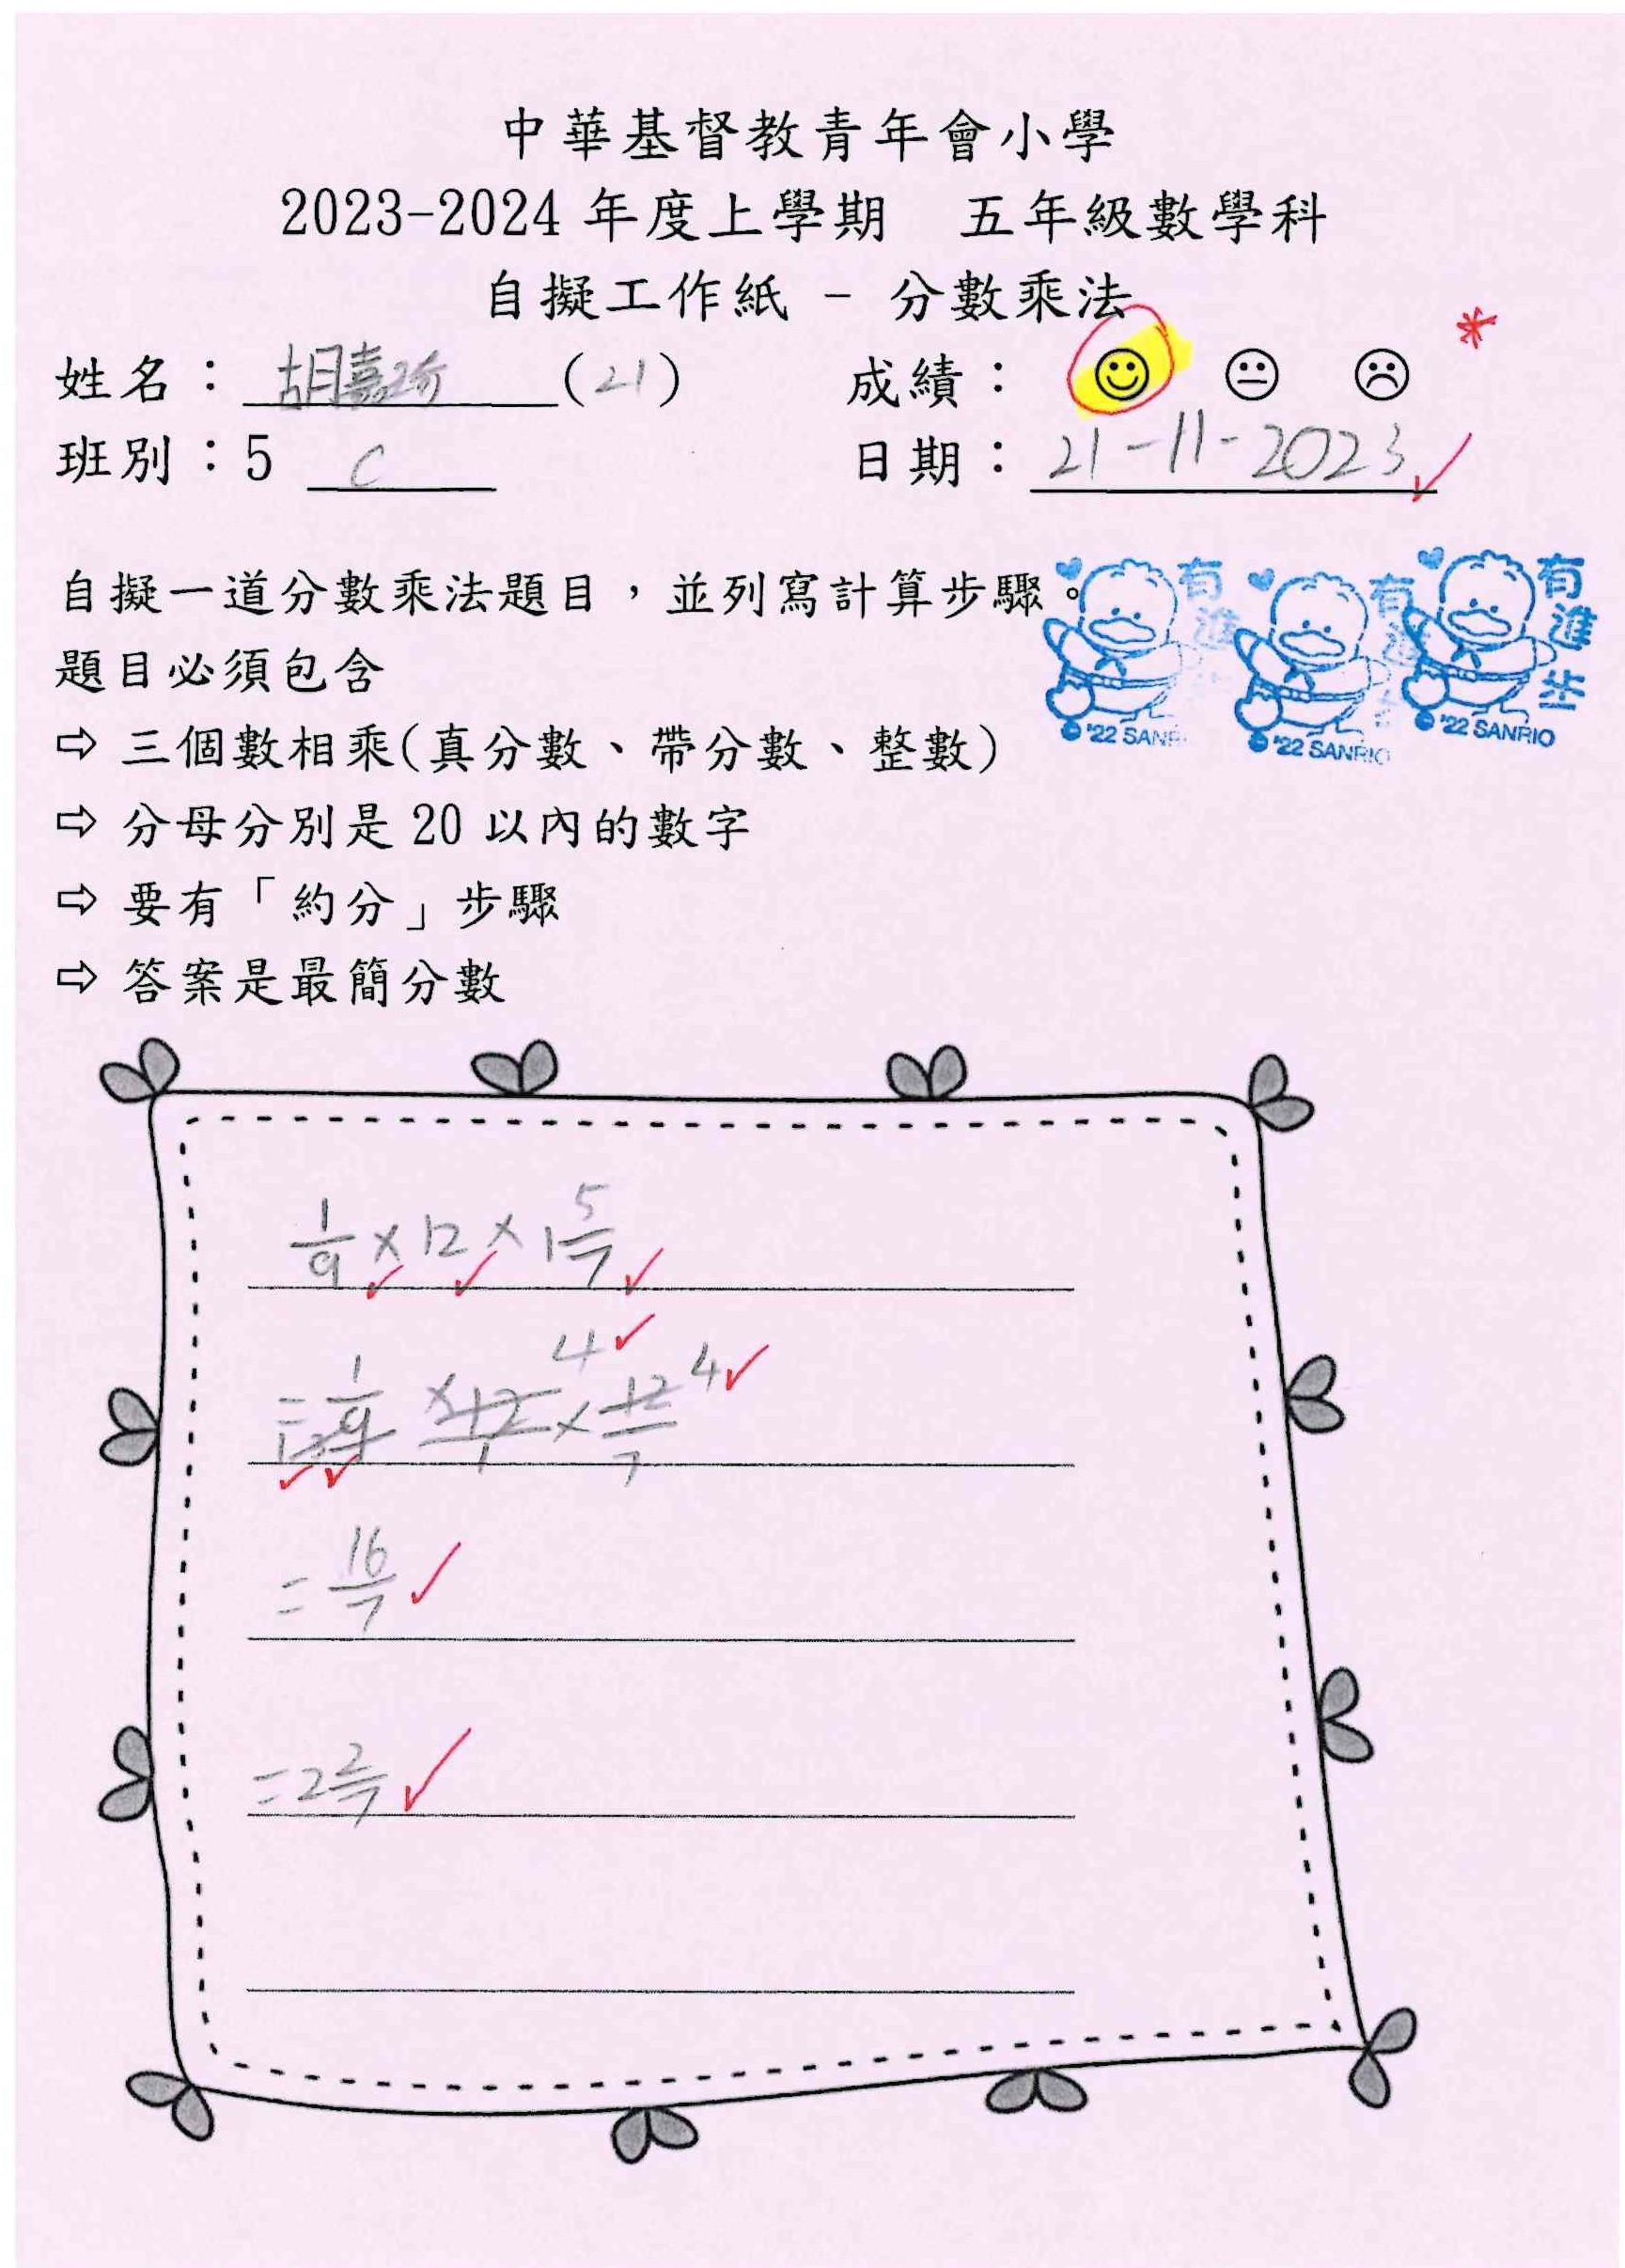 中華基督教青年會小學
2023-2024 年度上學期 五年級數學科
自擬工作紙 - 分數乘法
姓名： 胡嘉瑜 (21) 成績：
班別：5 C 日期： 21-11-2023
自擬一道分數乘法題目，並列寫計算步驟。
題目必須包含
⇨ 三個數相乘(真分數、帶分數、整數)
⇨ 分母分別是 20 以內的數字
⇨ 要有「約分」步驟
⇨ 答案是最簡分數
有進步
©'22 SANRIO
有進步
©'22 SANRIO
有進步
©'22 SANRIO
1/9 × 12 × 1 5/7
= 1/9 × 12/1 × 12/7 4 4 1 3
= 16/7
= 2 2/7